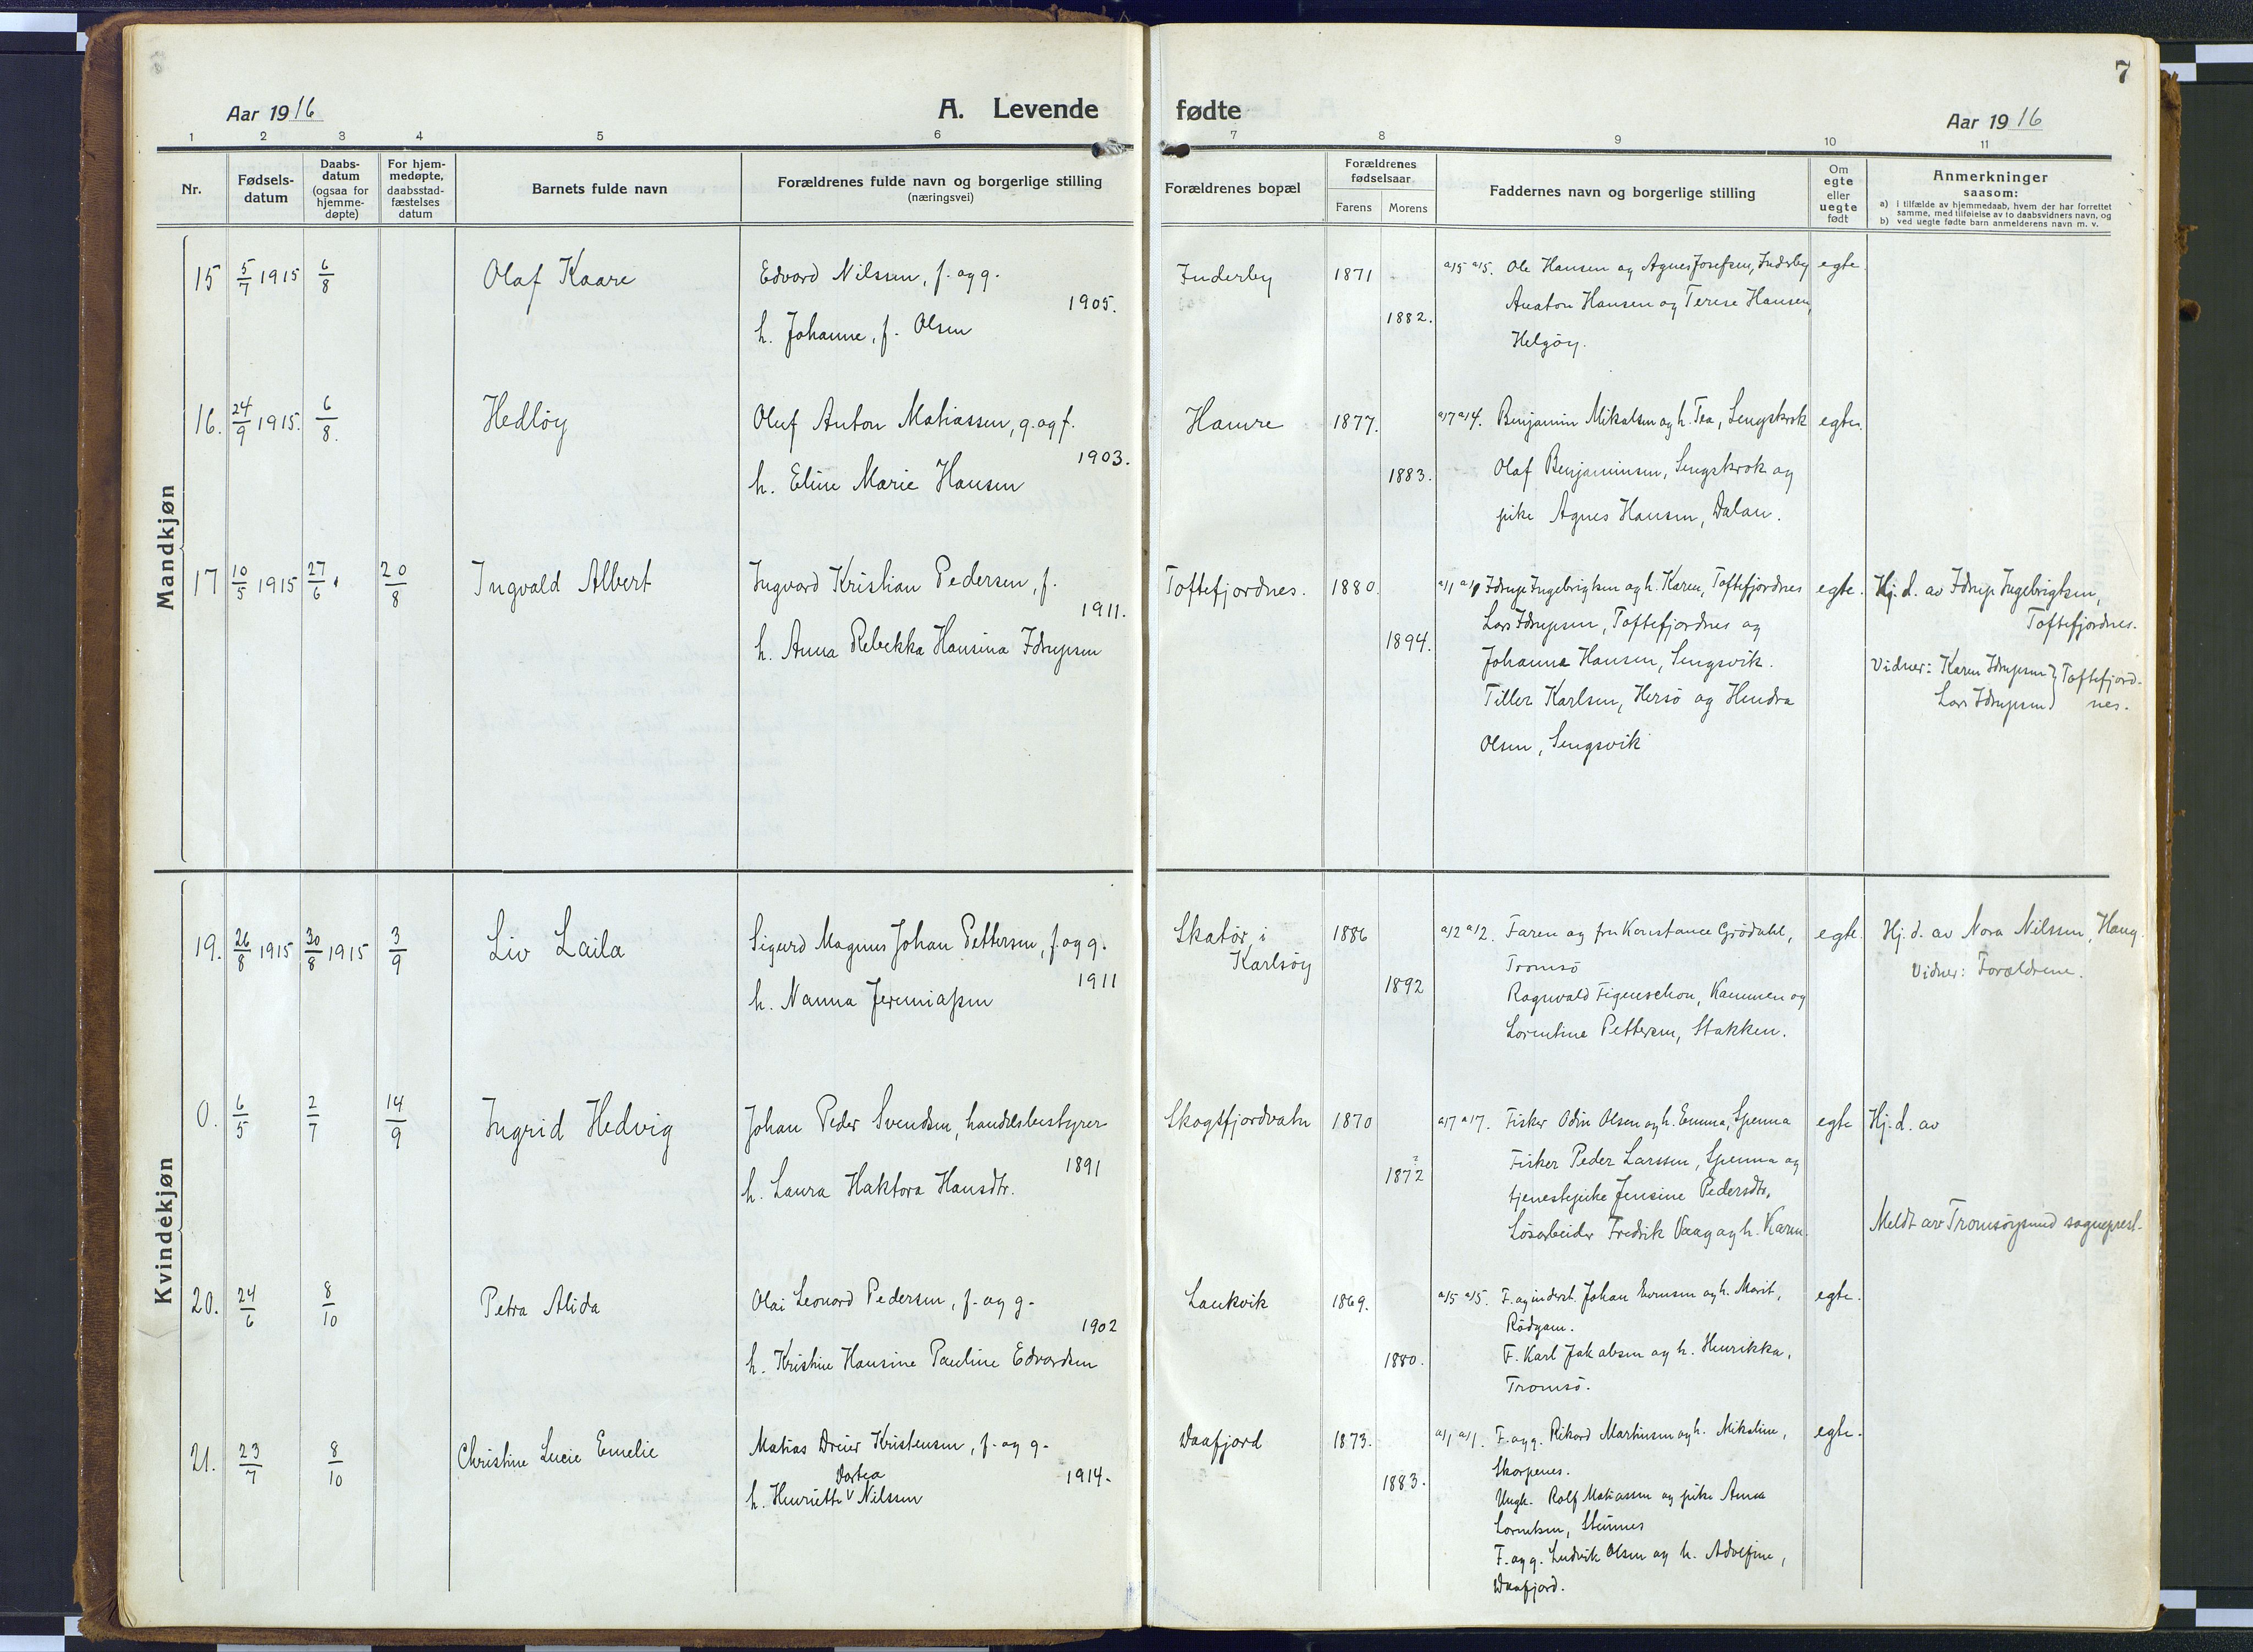 7
Aar 1916
A. Levende fødte
Aar 1916
1 2 3 4 5 6 7 8 9 10 11
Nr.
Fødsels-
datum
Daabs-
datum
(ogsaa for
hjemme-
døpte)
For hjem-
medøpte,
daabsstad-
fæstelses
datum
Barnets fulde navn
Forældrenes fulde navn og borgerlige stilling
(næringsvei)
Forældrenes bopæl
Forældrenes
fødselsaar
Farens Morens
Faddernes navn og borgerlige stilling
Om
egte
eller
uegte
født
Anmerkninger
saasom:
a) i tilfælde av hjemmedaab, hvem der har forrettet
samme, med tilføielse av to daabsvidners navn, og
b) ved uegte fødte barn anmelderens navn m. v.
Mandkjøn
15 5/7 1915 6/8 Olaf Kaare
Edvard Nilssen, f. og g.
1905.
h. Johanne, f. Olsen
Inderby 1871
1882.
a/5 a/5. Ole Hansen og Agnes Josefsen, Inderby
Anaton Hansen og Terese Hansen,
Helgöy.
egte.
16. 24/9 1915. 6/8. Hedlöy
Oluf Anton Matiassen, g. og f.
1903.
h. Eline Marie Hansen
Hamre 1877.
1883.
a/7 a/4. Benjamin Mikalsen og h. Tea, Lengskrok
Olaf Benjaminsen, Lengskrok og
pike Agnes Hansen, Dalan.
egte.
17 10/5 1915 27/6 20/8 Ingvald Albert
Ingvard Kristian Pedersen, f.
1911.
h. Anna Rebekka Hansina Idrupsen
Toftefjordnes. 1880.
1894.
a/1 Idrup Ingebrigtsen og h. Karen, Toftefjordnes
Lars Idrupsen, Toftefjordnes og
Johanna Hansen, Lengsvik.
Tiller Karlsen, Hersö og Hendra
Olsen, Lengsvik
egte.
Hj. d. av Idrup Ingebrigtsen,
Toftefjordnes.
Vidner: Karen Idrupsen } Toftefjord-
Lars Idrupsen } nes.
Kvindekjøn
19. 26/8 1915 30/8 1915 3/9 Liv Laila
Sigurd Magnus Johan Pettersen, f. og g.
1911
h. Nanna Jeremiassen
Skatör i
Karlsöy
1886
1892
a/2 a/2. Faren og fru Konstance Grödahl,
Tromsö
Ragnvald Figenschou, Kammen og
Lorentine Pettersen, Stakken.
egte.
Hj. d. av Nora Nilssen, Haug.
Vidner: Forældrene.
0. 6/5 2/7 14/9 Ingrid Hedvig
Johan Peder Svendsen, handelsbestyrer
1891
h. Laura Haktora Hansdtr.
Skogsfjordvatn 1870
1872 ?
a/7 a/7. Fisker Odin Olsen og h. Emma, Spenna
Fisker Peder Larssen, Spenna og
tjenestepike Jensine Pedersdtr,
Løsarbeider Fredrik Vaag og h. Karen.
egte
Hj. d. av
Meldt av Tromsøysund sogneprest.
20. 24/6 8/10 Petra Alida
Olai Leonard Pedersen, f. og g.
1902
h. Kristine Hansine Pauline Edvardsen
Laukvik 1869.
1880.
a/5 a/5. F. og inderst. Johan Evensen og h. Marit,
Rödgam.
F. Karl Jakobsen og h. Henrikka,
Tromsö.
egte.
21. 23/7 8/10 Christine Lucie Emelie
Matias Dreier Kristensen, f. og g.
1914.
Dortea
h. Henriette v Nilssen
Daafjord 1873.
1883.
a/1 a/1. F. og g. Rikard Martinsen og h. Mikaline,
Skorpenes.
Ungk. Rolf Matiassen og pike Anna
Lorentsen, Steinnes
F. og g. Ludvik Olsen og h. Adolfine,
Daafjord.
egte.